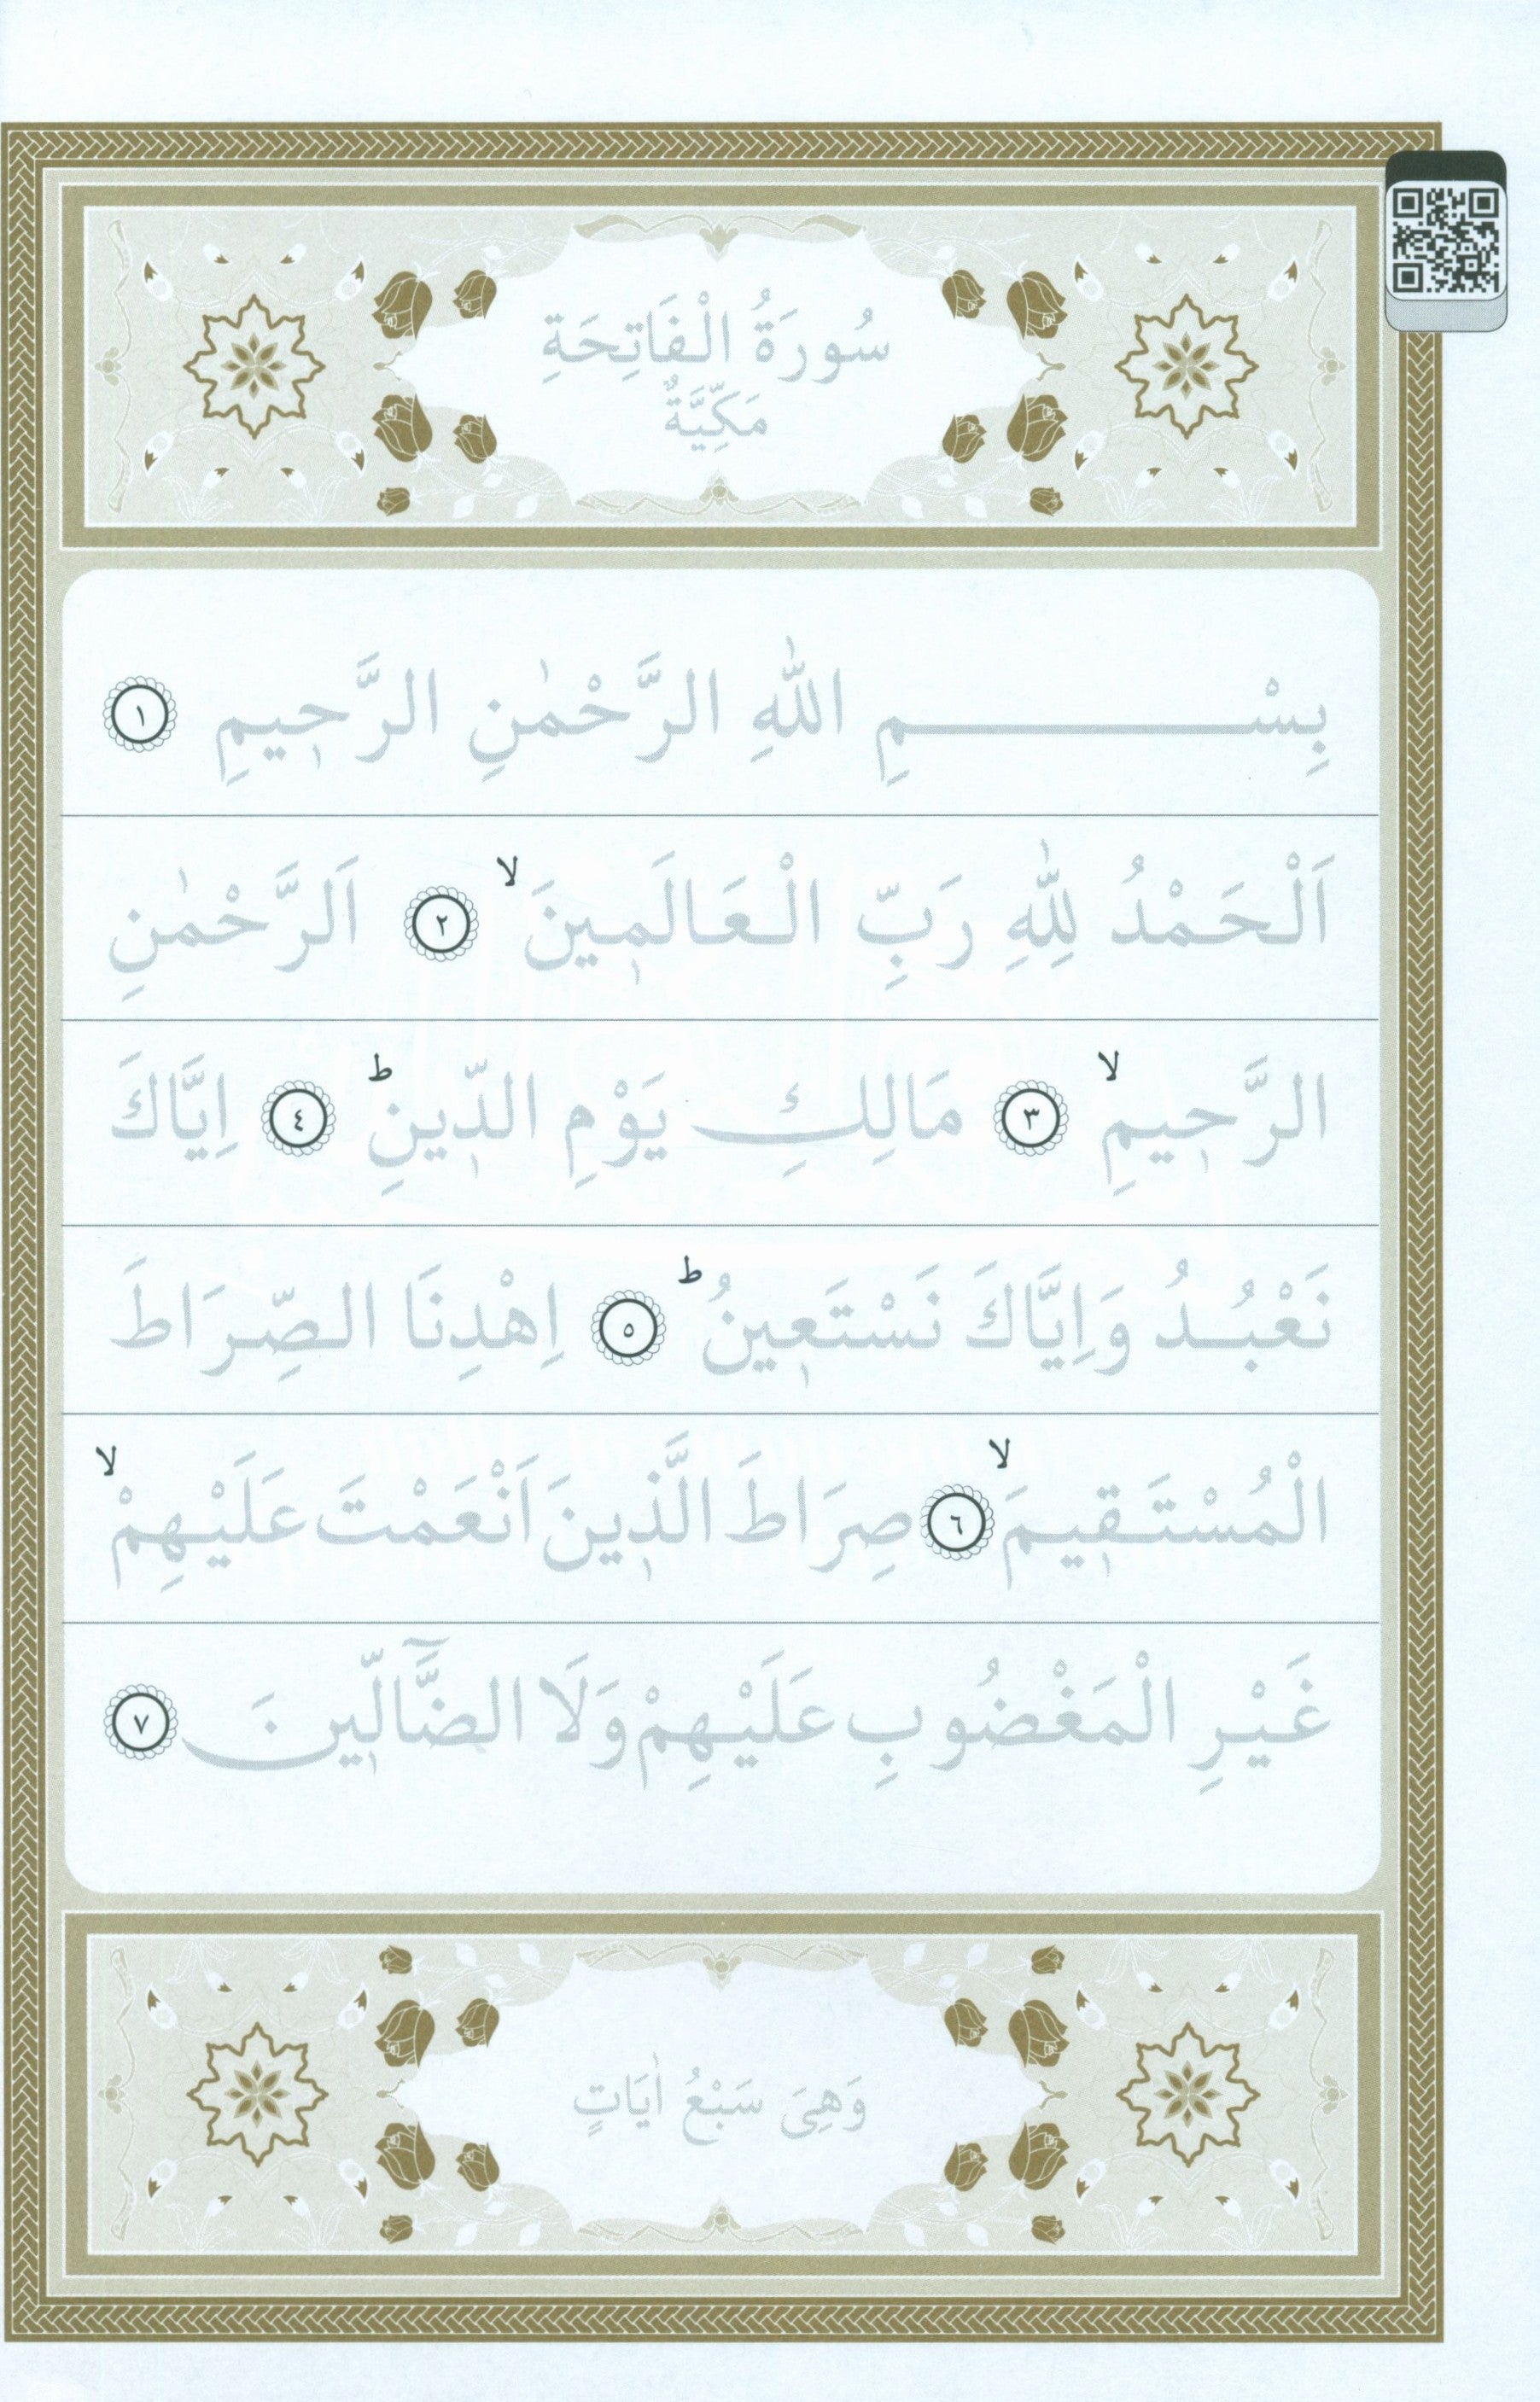 سُورَةُ الْفَاتِحَةِ
مَكِّيَّةٌ
بِسْــــــــــمِ اللّٰهِ الرَّحْمٰنِ الرَّحٖيمِ ١
اَلْحَمْدُ لِلّٰهِ رَبِّ الْعَالَمٖينَ ۙ ٢ اَلرَّحْمٰنِ
الرَّحٖيمِ ۙ ٣ مَالِكِ يَوْمِ الدّٖينِ ؕ ٤ اِيَّاكَ
نَعْبُدُ وَاِيَّاكَ نَسْتَعٖينُ ؕ ٥ اِهْدِنَا الصِّرَاطَ
الْمُسْتَقٖيمَ ۙ ٦ صِرَاطَ الَّذٖينَ اَنْعَمْتَ عَلَيْهِمْ ۙ
غَيْرِ الْمَغْضُوبِ عَلَيْهِمْ وَلَا الضَّٓالّٖينَ ٧
وَهِىَ سَبْعُ اٰيَاتٍ